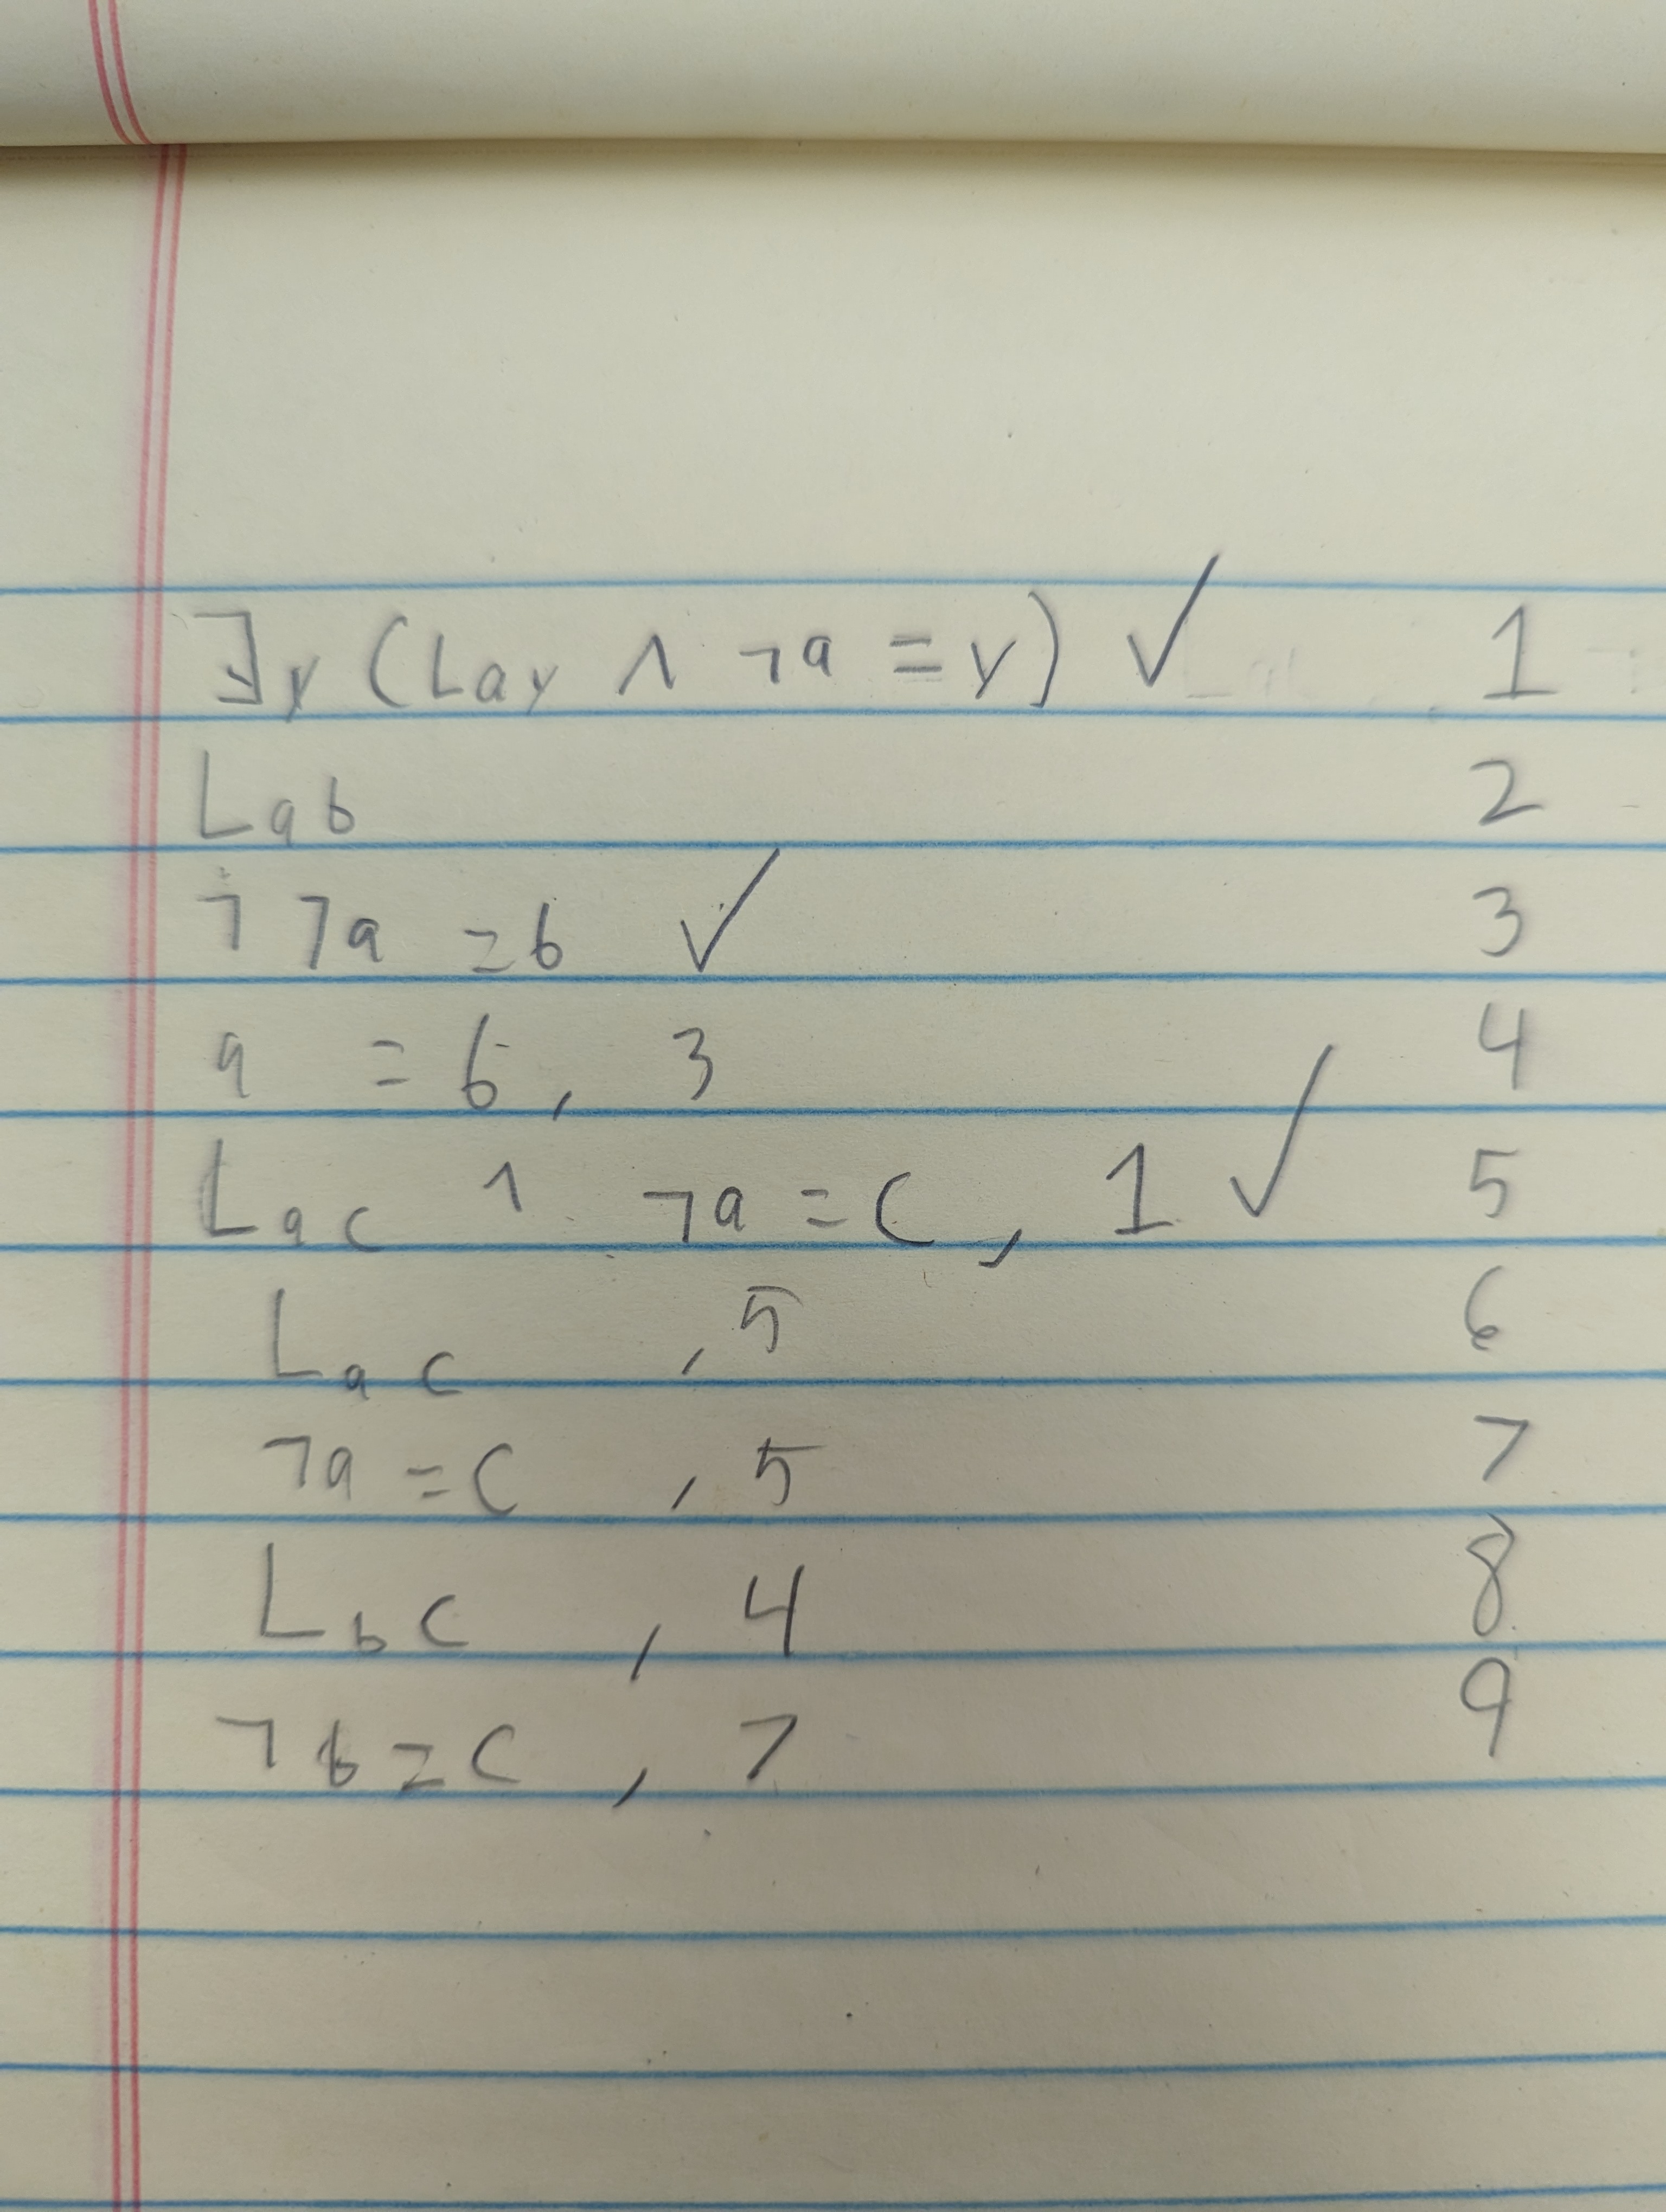 ∃y (Lay ∧ ¬a = y) ✓ 1
Lab 2
¬¬a = b ✓ 3
a = b, 3 4
Lac ∧ ¬a = c, 1 ✓ 5
Lac , 5 6
¬a = c , 5 7
Lbc , 4 8
¬b = c , 7 9